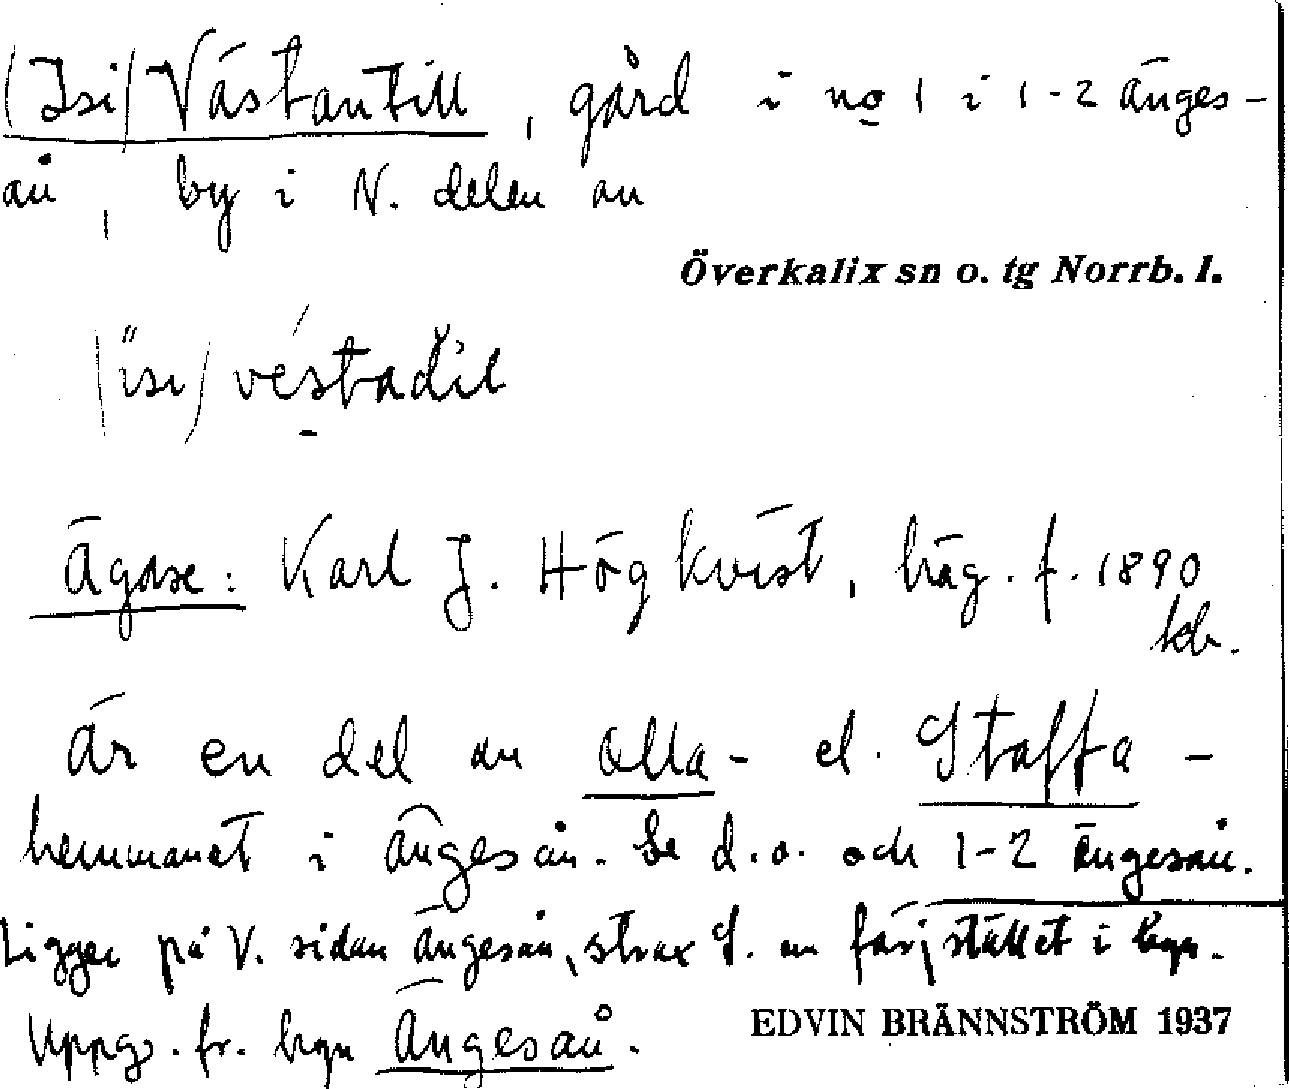 (Isi) Västantill, gård i no 1 i 1-2 Änges-
ån, by i N. delen av
Överkalix sn o. tg Norrb. l.
(isi) véstadil
Ägare: Karl J. Högkvist, häg. f. 1890
kb.
Är en del av Olla- el. Staffa-
hemmanet i Ängesån. Se d.o. och 1-2 Ängesån.
Ligger på V. sidan Ängesån, strax S. om färjstället i byn.
Uppg. fr. byn Ängesån.
EDVIN BRÄNNSTRÖM 1937